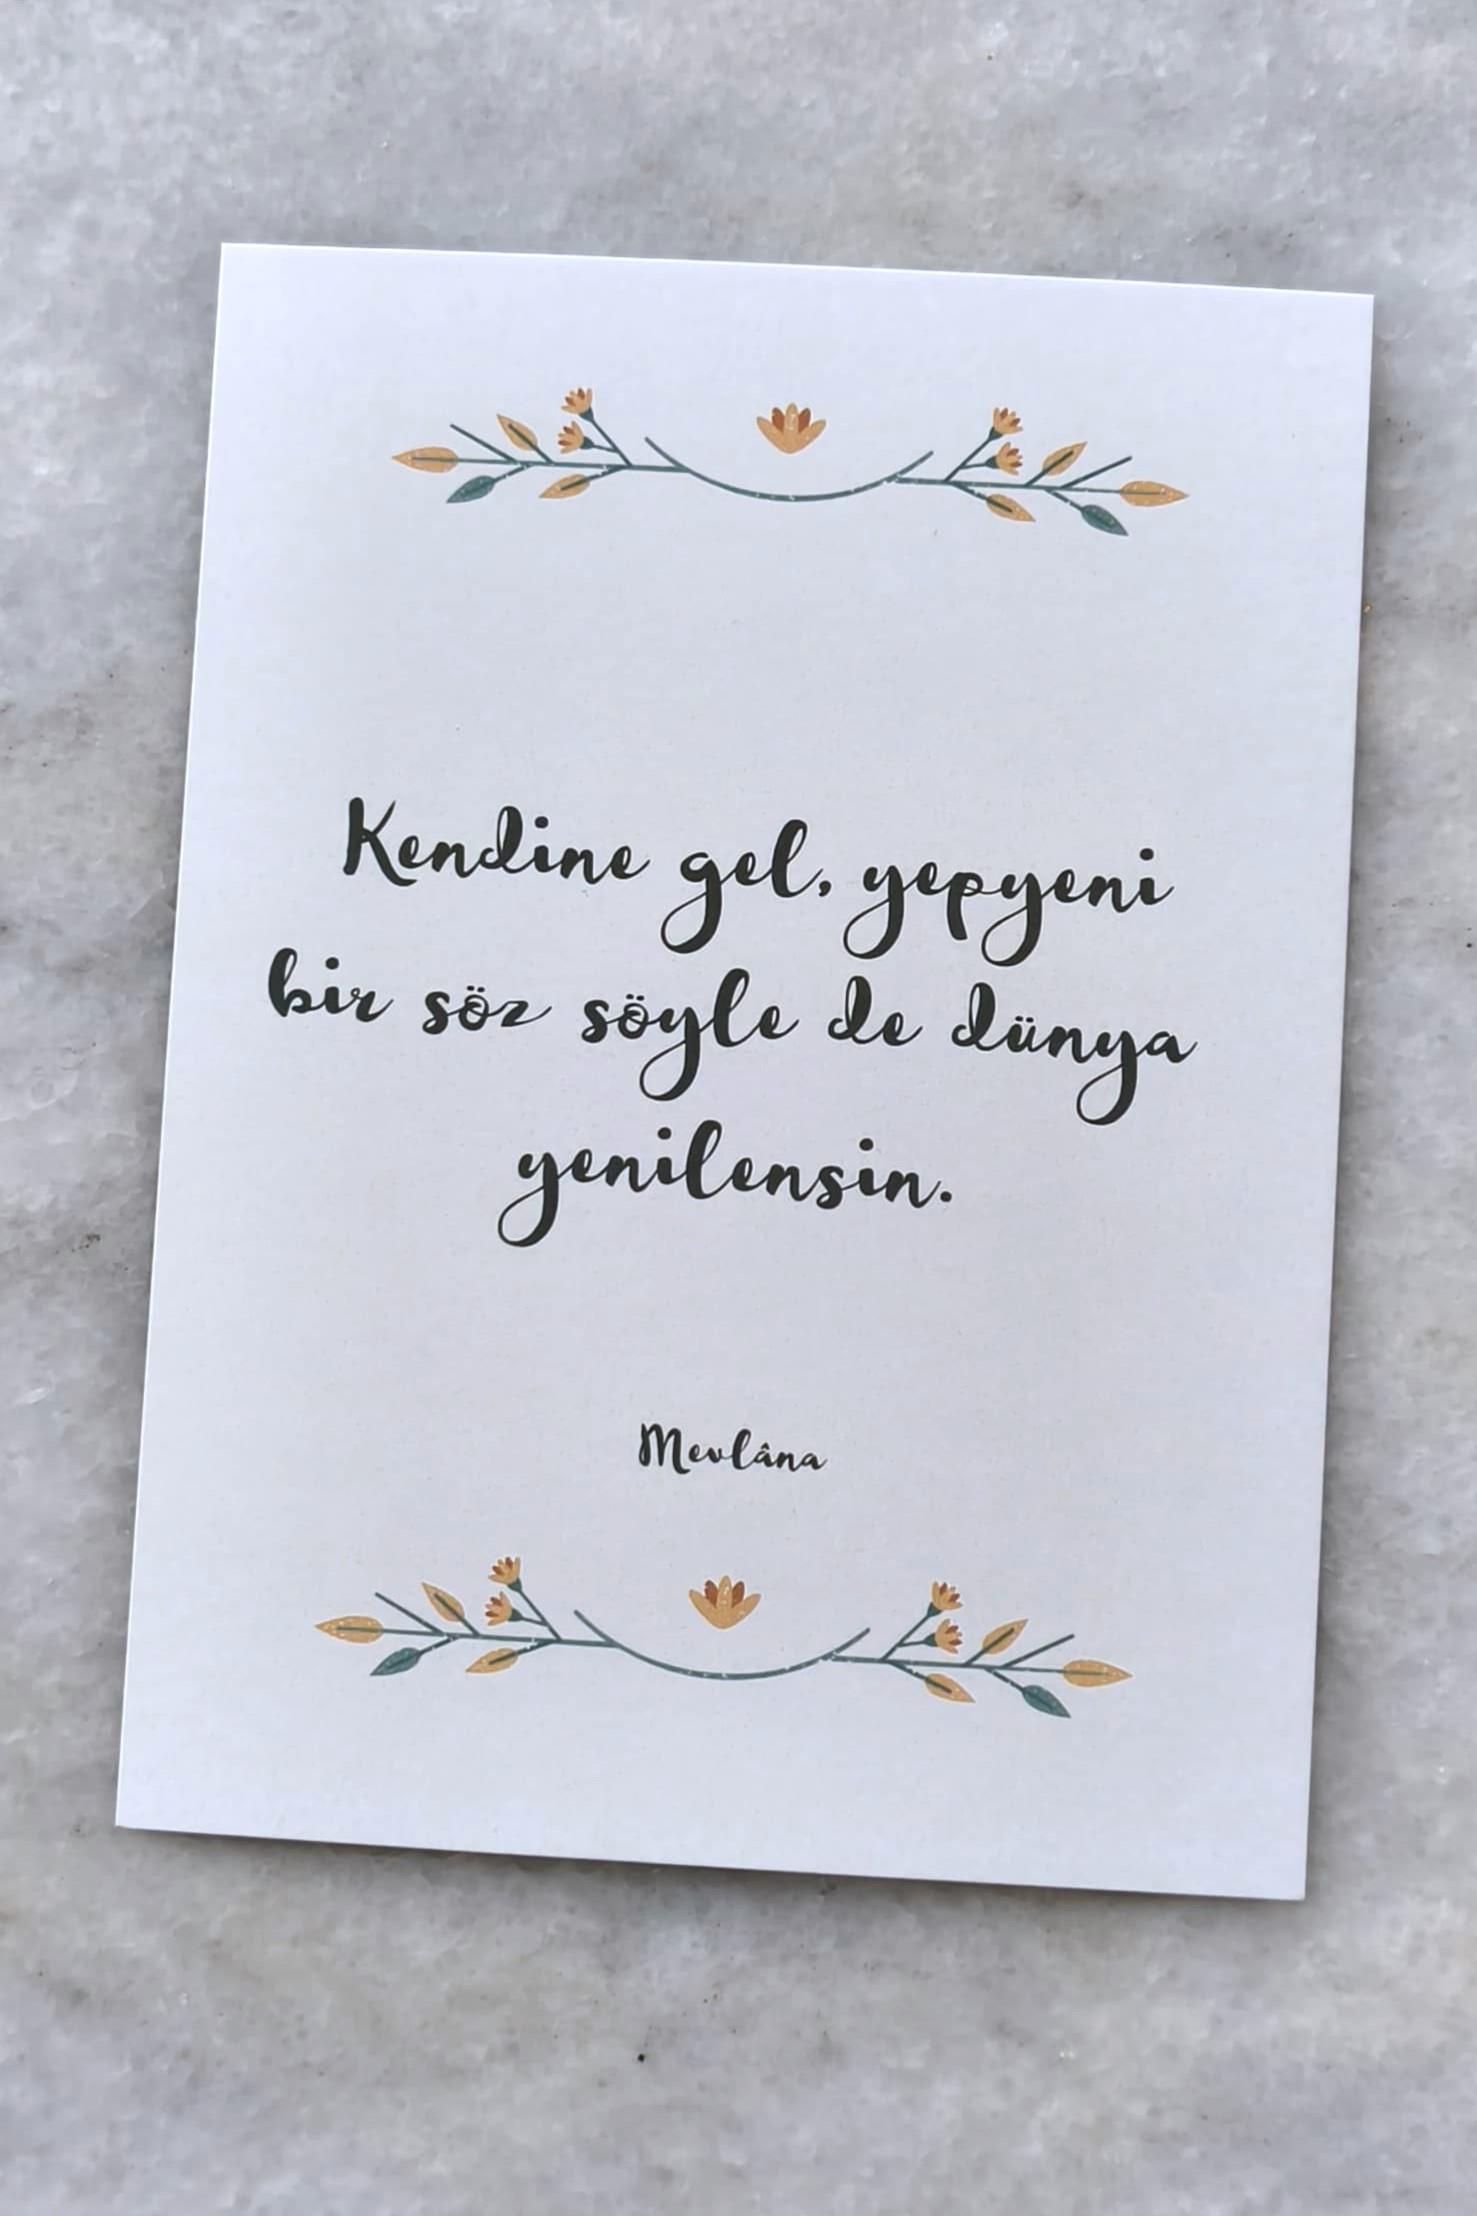 Kendine gel, yepyeni
bir söz söyle de dünya
yenilensin.
Mevlâna